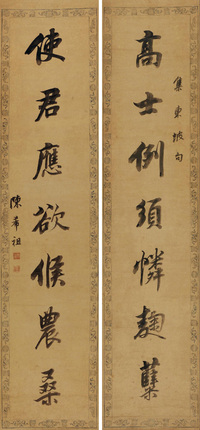 集東坡句
高士例須憐麴糵
使君應欲候農桑
陳希祖